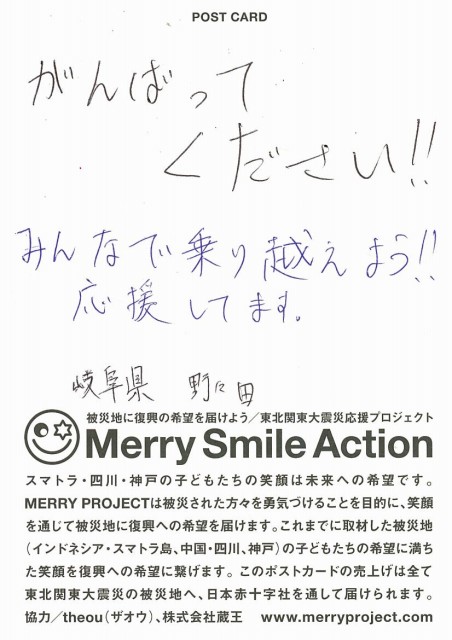 POST CARD
がんばって
ください!!
みんなで乗り越えよう!!
応援してます。
岐阜県 野々田
被災地に復興の希望を届けよう／東北関東大震災応援プロジェクト
Merry Smile Action
スマトラ・四川・神戸の子どもたちの笑顔は未来への希望です。
MERRY PROJECTは被災された方々を勇気づけることを目的に、笑顔
を通じて被災地に復興への希望を届けます。これまでに取材した被災地
（インドネシア・スマトラ島、中国・四川、神戸）の子どもたちの希望に満ち
た笑顔を復興への希望に繋げます。このポストカードの売上げは全て
東北関東大震災の被災地へ、日本赤十字社を通して届けられます。
協力／theou（ザオウ）、株式会社蔵王 www.merryproject.com